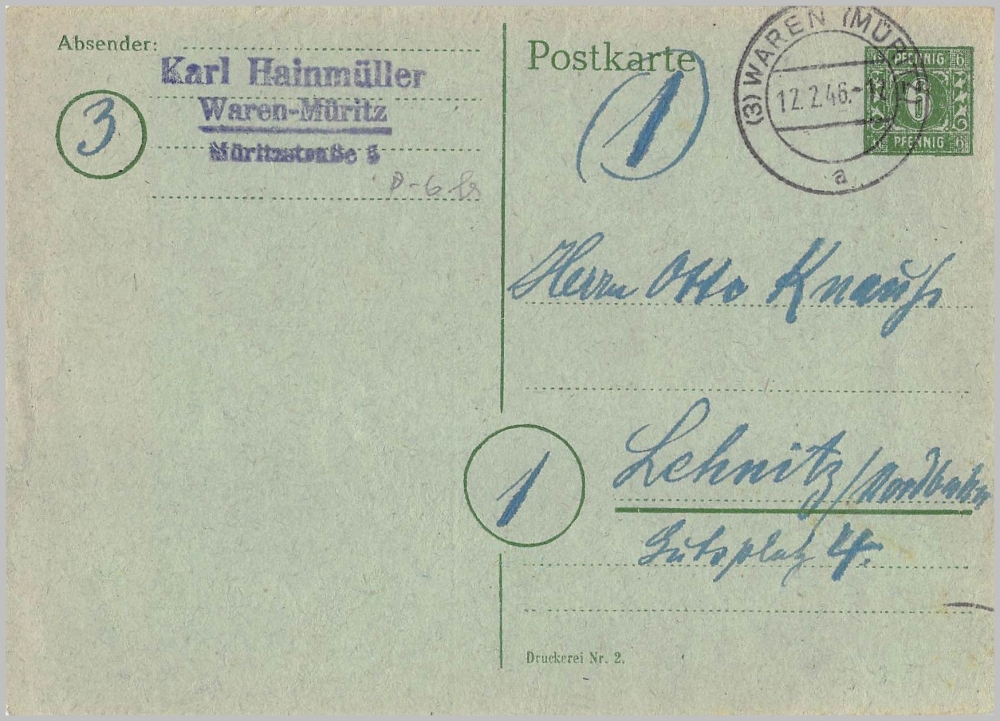 Absender:
Karl Hainmüller
Waren-Müritz
Müritzstraße 5
3
Postkarte
1
(3) WAREN (MÜRITZ)
12.2.46.-12
a
6 PFENNIG 6
6
6 PFENNIG 6
Herrn Otto Knauß
1
Lehnitz/Nordbahn
Gutsplatz 4.
Druckerei Nr. 2.